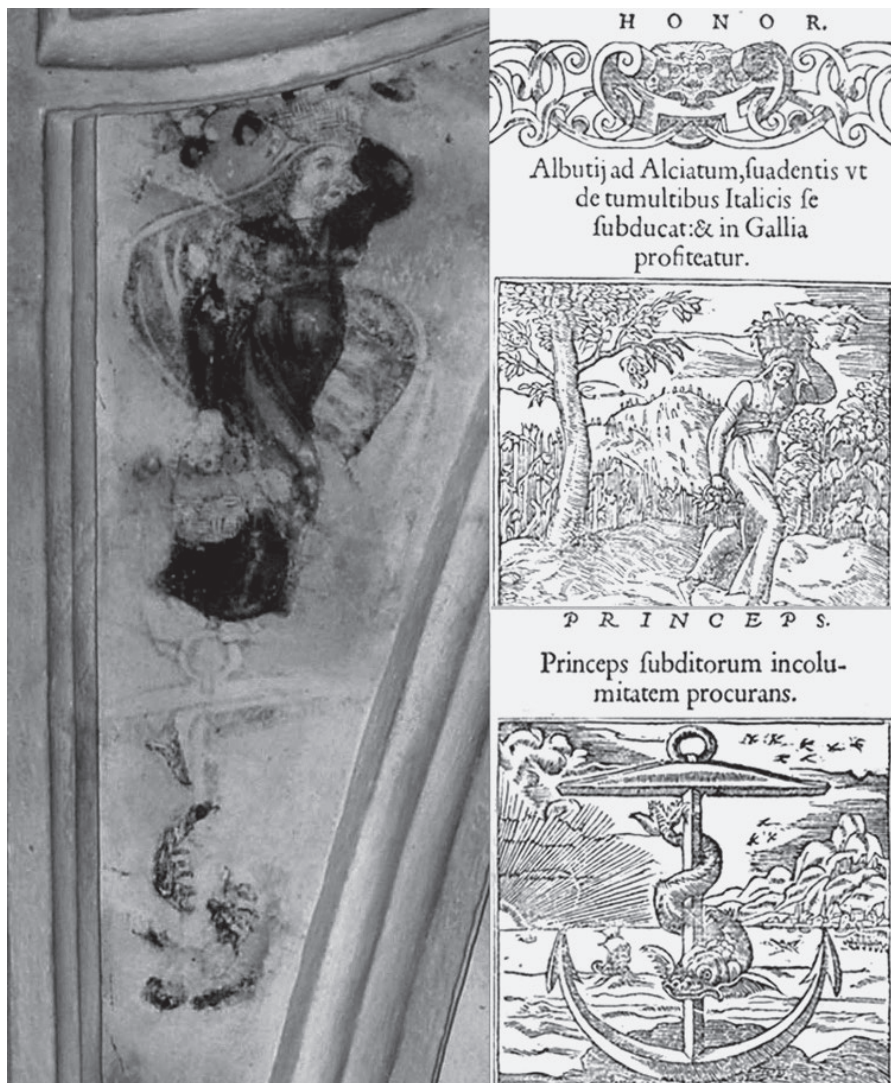 H O N O R.
Albutij ad Alciatum, ſuadentis vt
de tumultibus Italicis ſe
ſubducat:& in Gallia
profiteatur.
P R I N C E P S.
Princeps ſubditorum incolu-
mitatem procurans.